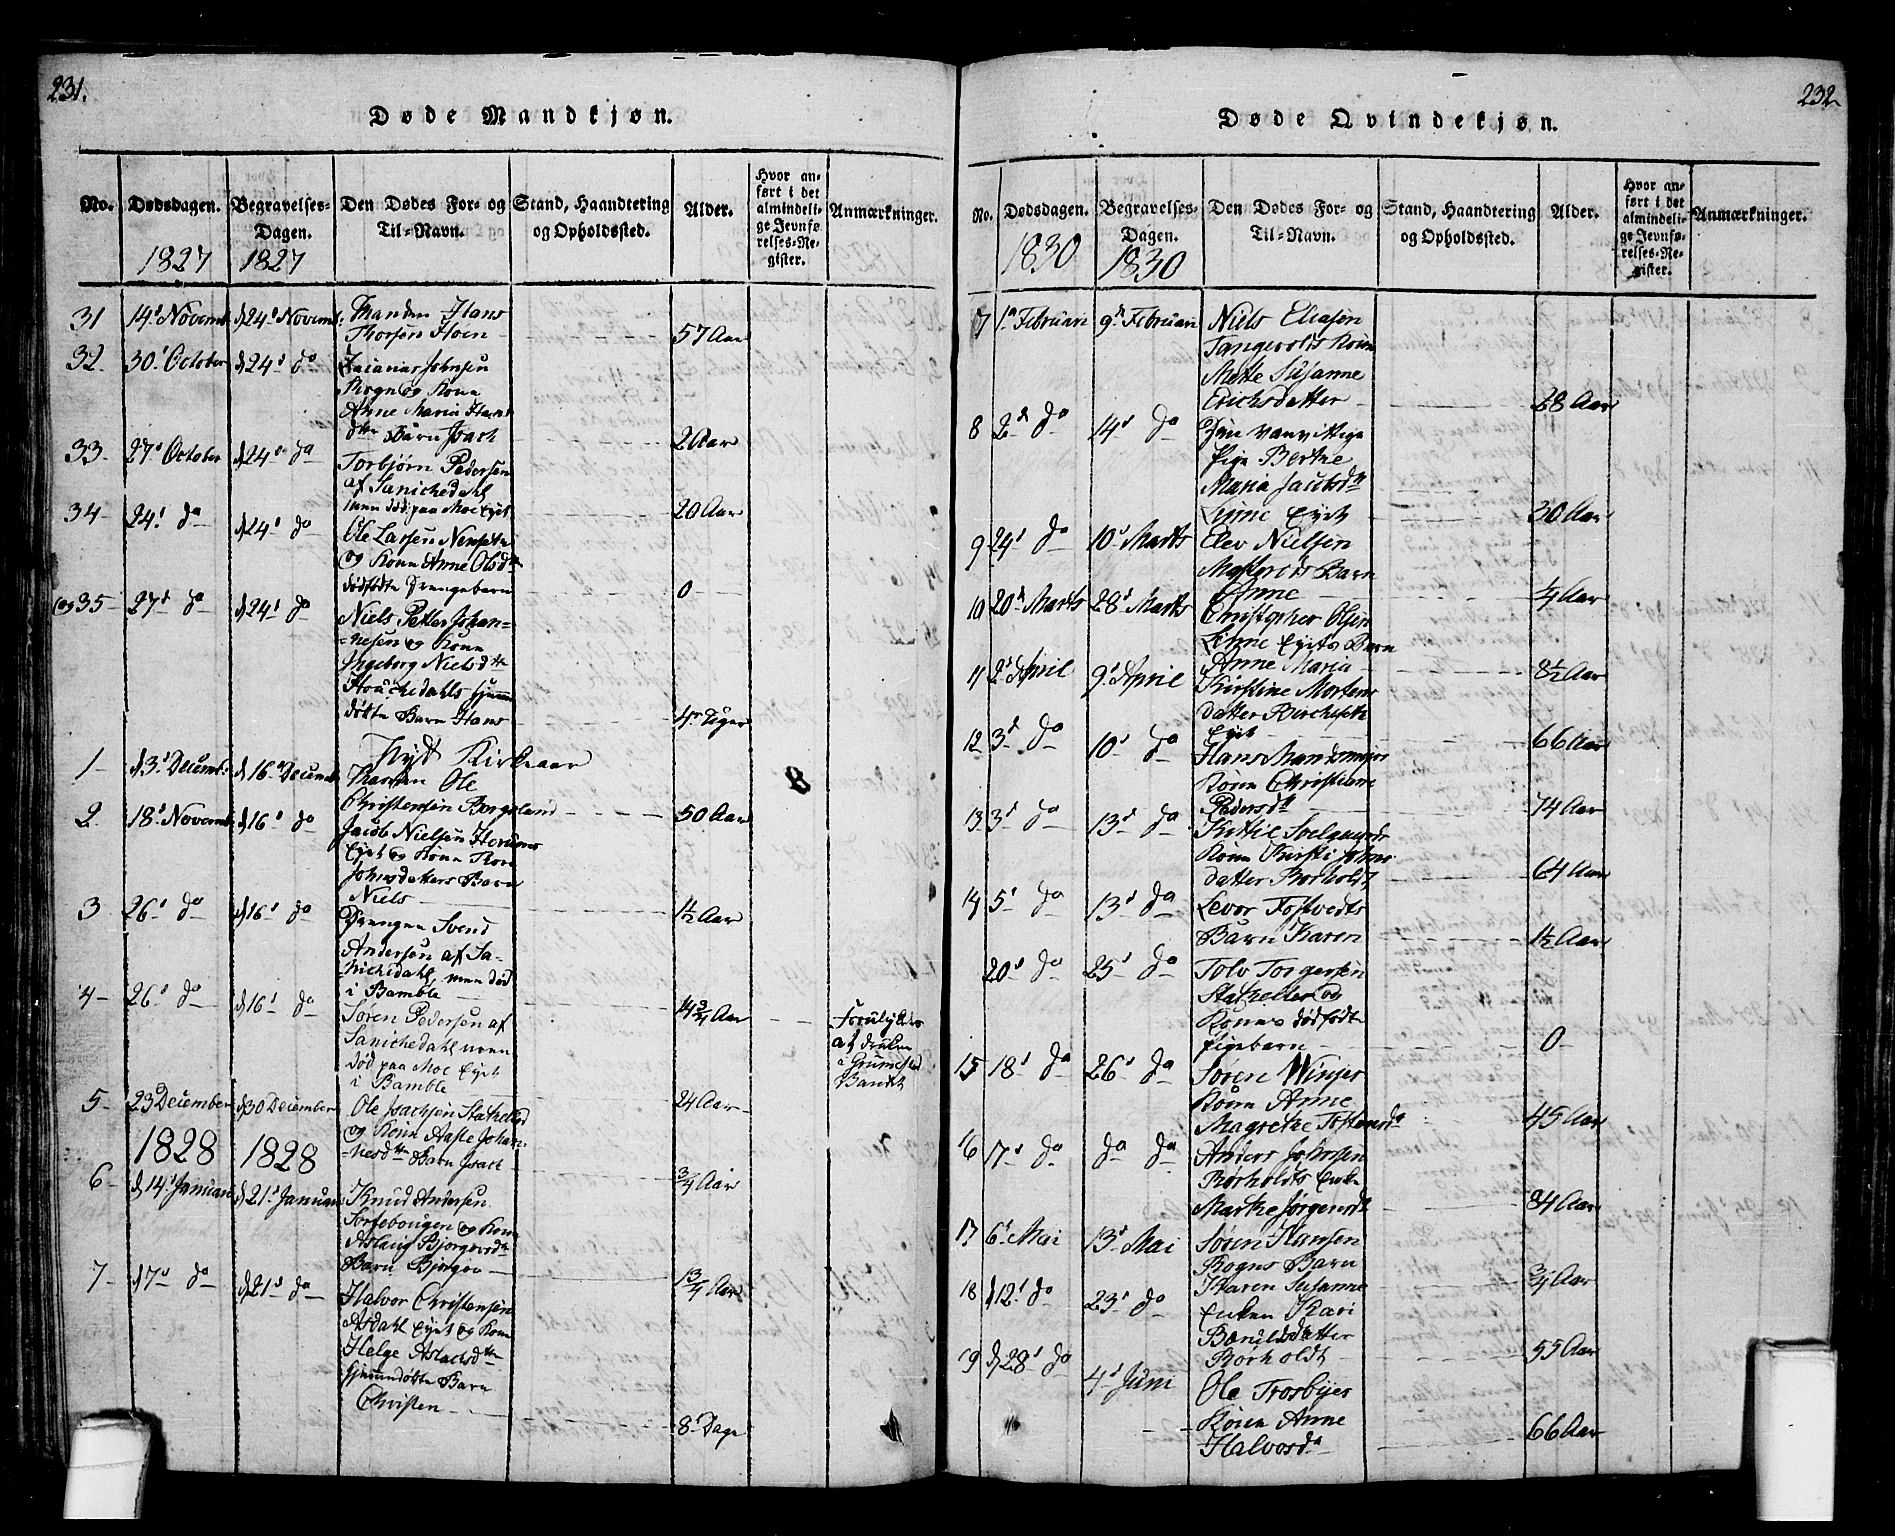 231.
Døde Mandkjøn.
No.
Dødsdagen.
Begravelses-
Dagen.
Den Dødes For- og
Til-Navn.
Stand, Haandtering
og Opholdssted.
Alder.
Hvor an-
ført i det
almindeli-
ge Jevnfø-
relses-Re-
gister.
Anmærkninger.
1827 1827
31 14d Novemb. d 24d Novemb. Manden Hans
Thorsen Hoen 57 Aar
32 30d October d 24d do Johnsen
Krogn og Kone
Anne Maria Hansd
dtr Barn Isach 2 Aar
33 27d October d 24d do Torbjørn Pedersen
af Sanichedahl
men død paa Moe Eyet 20 Aar
34 24d do d 24d do Ole Larsen
og Kone Anne Olsdtr
dødfødte Drengebarn 0
35 27d do d 24d do Niels Petter Johan-
nesen og Kone
Ingeborg Nielsdtr
hjemme
døbte Barn Hans 4r Uger
Nyt Kirkeaar
1 d 3d Decemb. d 16d Decemb. Manden Ole
Christensen Borgeland 50 Aar
2 18d Novemb. d 16d do Jacob Nielsen
Eyet og Kone
Johnsdatters Barn
Niels 1½ Aar
3 26d do d 16d do Drengen Svend
Andersen af Sa-
nichedahl, men død
i Bamble 14¾ Aar
4 26d do d 16d do Søren Pedersen af
Sanichedahl men
død paa Moe Eyet
i Bamble 24 Aar
Forulykket
5 23 December d 30 December Ole Isachsen Stathelled
og Kone Aaste Johan-
nesdtr Barn Isach ¾ Aar
1828 1828
6 d 14d Januari d 21d Januari Knud Andersen
og Kone
Aslaug Bjorgvsdtr
Barn Bjorgov 1¾ Aar
7 d 17d do d 21d do Halvor Christensen
Asdahl Eyet og Kone
Helge Aslachsdtr
hjemmedøbte Barn
Christen 8d Dage
232
Døde Qvindekjøn.
No.
Dødsdagen.
Begravelses-
Dagen.
Den Dødes For- og
Til-Navn.
Stand, Haandtering
og Opholdssted.
Alder.
Hvor an-
ført i det
almindeli-
ge Jevnfø-
relses-Re-
gister.
Anmærkninger.
1830 1830
7 1d Februari 9d Februari Niels Eliasen
Tangvolds Kone
Mette Susanne
Erichsdatter 28 Aar
8 2d do 14d do vanvittige
Pige Berthe
Maria Jacobsdtr
Linne Eyet 30 Aar
9 24d do 10d Marts Elev Nielsen
Barn
Anne ¼ Aar
10 20d Marts 28d Marts Christopher Olsen
Linne Eyets Barn
Anne Maria 8½ Aar
11 2d April 9d April Kirstine Mortens
datter
Eyet 66 Aar
12 3d do 10d do Hans
Kone Christiane
Pedersdtr 74 Aar
13 3d do 13d do Kittil
Kone Kirsti Johns
datter Rørholdt 64 Aar
14 5d do 13d do Levor Tostvedts
Barn Karen 1½ Aar
20d do 25d do Tolv Torgersen
Stathelles og
Kones dødfødte
Pigebarn 0
15 18d do 26d do Søren Winjes
Kone Anne
Magrethe 45 Aar
16 17d do do do Anders Johnsen
Rørholdts Enke
Marthe Jørgensdtr 84 Aar
17 6d Mai 13d Mai Søren Hansen
Rogns Barn
Karen Susanne ¾ Aar
18 d 12d do 23d do Enken Kari
datter
Rørholdt 55 Aar
19 d 28d do 4d Juni Ole Trosbyes
Kone Anne
Halvorsdtr 66 Aar